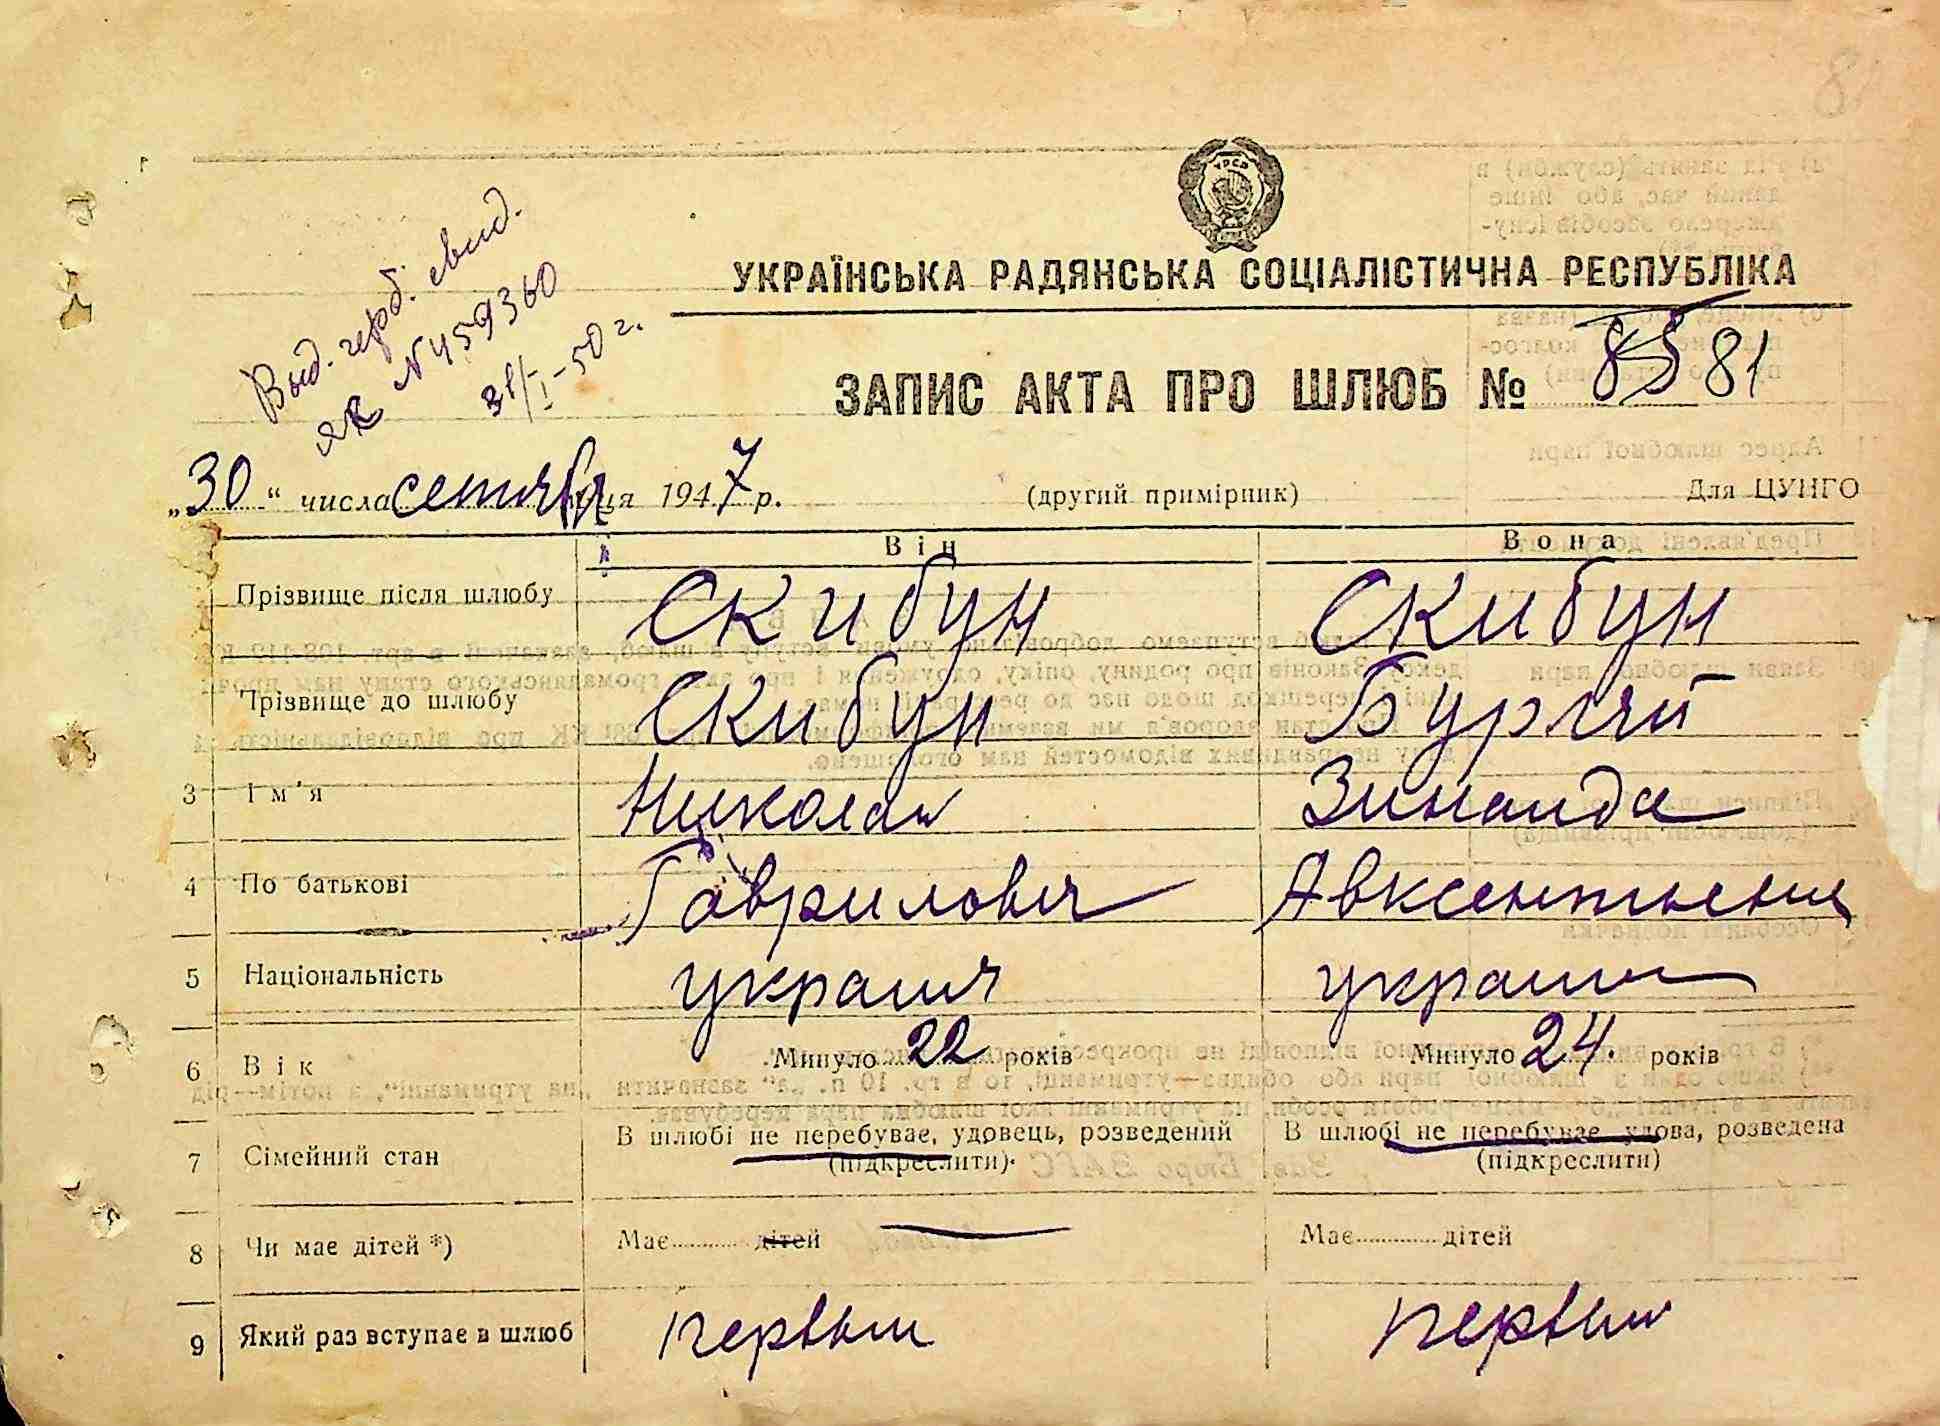 81
Выд. герб. свид.
ЯК N 459360
31/I-50 г.
УРСР
УКРАЇНСЬКА РАДЯНСЬКА СОЦІАЛІСТИЧНА РЕСПУБЛІКА
ЗАПИС АКТА ПРО ШЛЮБ № 85 81
„30“ числа сентября місяця 1947 р. (другий примірник) Для ЦУНГО
Він Вона
Прізвище після шлюбу Скибун Скибун
Прізвище до шлюбу Скибун
3 Ім'я Николай Зинаида
4 По батькові Гаврилович Авксентьевна
5 Національність
6 Вік Минуло 22 років Минуло 24. років
7 Сімейний стан В шлюбі не перебуває, удовець, розведений В шлюбі не перебуває, удова, розведена
(підкреслити). (підкреслити)
8 Чи має дітей *) Має дітей — Має дітей
9 Який раз вступає в шлюб первый первый